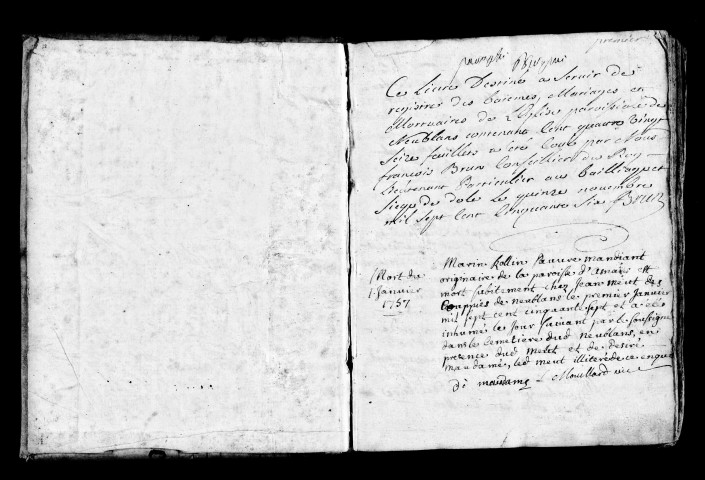 premier
Ces Livre Destiné a servir de
registre des batemes, Mariages et
Mortuaires de L'Eglise paroissiale de
Neublans contenant Cent quatre Vingt
Seize feuillets a été Cotté par Nous
francois Brun Conseiller du Roy
Lieutenant Particulier aux bailliage et
Siege de dole le quinze novembre
mil Sept Cent Cinquante Six Brun
Mort du
1 Janvier
1757
Marin Rollin Pauvre mandiant
originaire de la paroisse d'Amaïs est
mort subitement chez Jean meut des
Couppies de neublans le premier Janvier
mil sept cent cinquante sept et a été
inhumé le Jour suivant par le soussigné
dans le Cemetiere dud Neublans, en
presence dud meut et de desiré
maudamé, led meut illiteré de ce enquis
Dé maudamé Mouillard vic